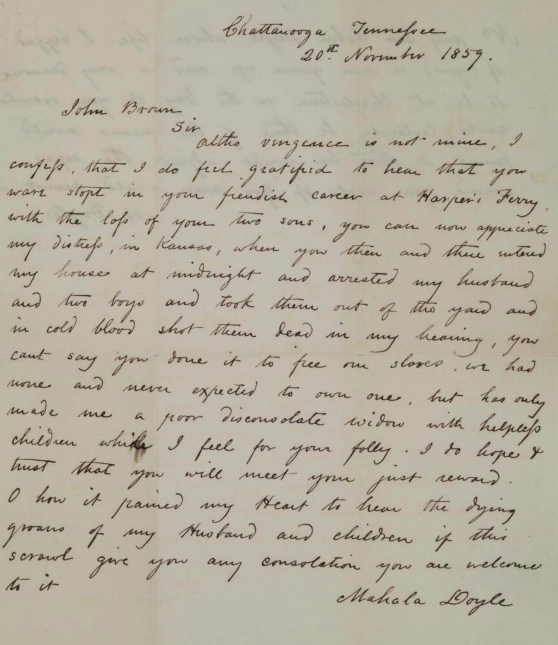 Chattanooga Tennessee
20th November 1859.
John Brown
Sir
Altho vengence is not mine, I
confess, that I do feel gratified to hear that you
ware stopt in your fiendish career at Harper's Ferry,
with the loss of your two sons, you can now appreciate
my distress, in Kansas, when you then and there entered
my house at midnight and arrested my husband
and two boys and took them out of the yard and
in cold blood shot them dead in my hearing, you
cant say you done it to free our slaves, we had
none and never expected to own one, but has only
made me a poor disconsolate widow with helpless
children while I feel for your folly. I do hope &
trust that you will meet your just reward.
O how it pained my Heart to hear the dying
groans of my Husband and children if this
scrawl give you any consolation you are welcome
to it
Mahala Doyle